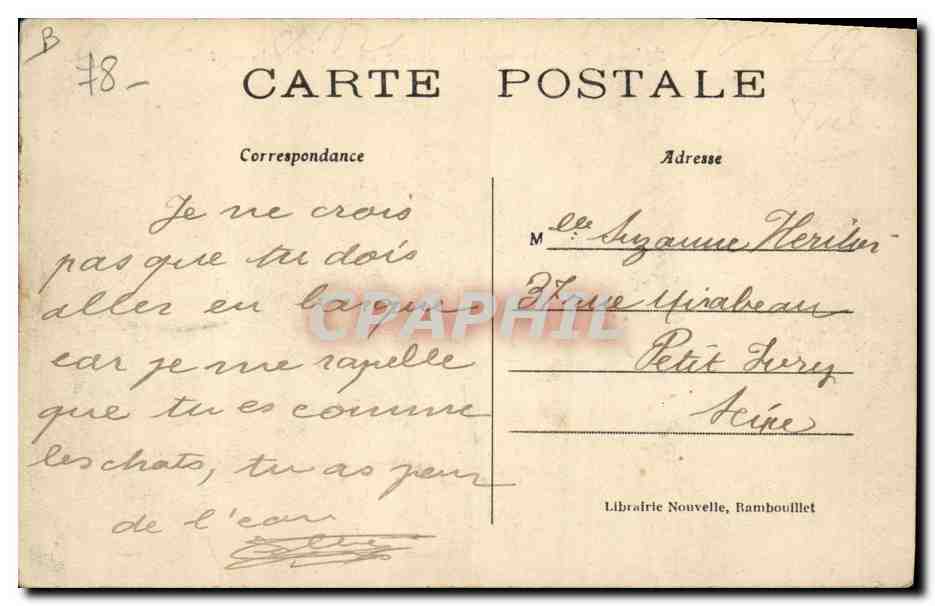 B
78-
CARTE POSTALE
Correspondance
Je ne crois
pas que tu dois
aller en barque
car je me rapelle
que tu es comme
les chats, tu as peur
de l'eau
Adresse
Mlle Suzanne
37 rue Mirabeau
Petit Ivry
Seine
Librairie Nouvelle, Rambouillet
CPAPHIL